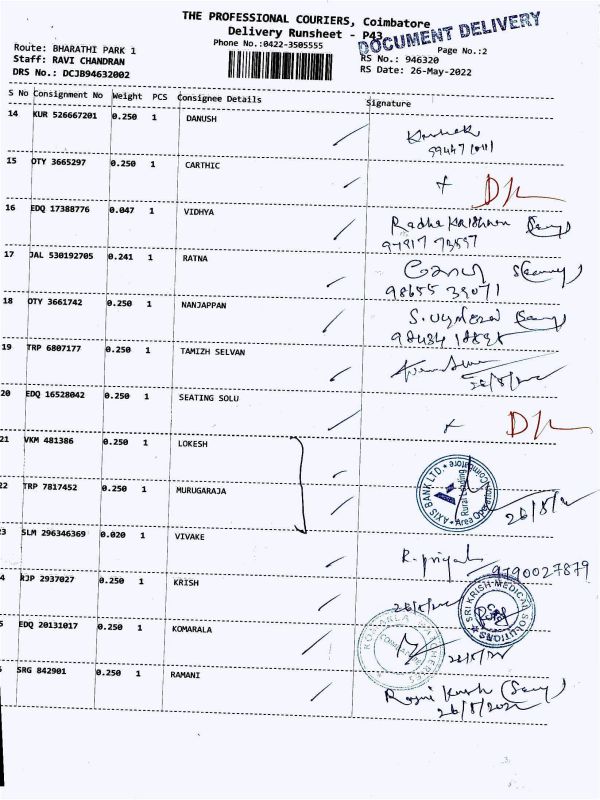 THE PROFESSIONAL COURIERS, Coimbatore
Delivery Runsheet - P43
DOCUMENT DELIVERY
Phone No.:0422-3505555
Page No.:2
Route: BHARATHI PARK 1
RS No.: 946320
Staff: RAVI CHANDRAN
RS Date: 26-May-2022
DRS No.: DCJB94632002
S No Consignment No Weight PCS Consignee Details Signature
14 KUR 526667201 0.250 1 DANUSH
15 OTY 3665297 0.250 1 CARTHIC
16 EDQ 17388776 0.047 1 VIDHYA
Radhakrishnan
17 JAL 530192705 0.241 1 RATNA
98655 39071
18 OTY 3661742 0.250 1 NANJAPPAN
19 TRP 6807177 0.250 1 TAMIZH SELVAN
20 EDQ 16528042 0.250 1 SEATING SOLU
21 VKM 481386 0.250 1 LOKESH
AXIS BANK LTD.
Rural Lending
Area Operations
Coimbatore
22 TRP 7817452 0.250 1 MURUGARAJA
3 SLM 296346369 0.020 1 VIVAKE
9790027879
4 RJP 2937027 0.250 1 KRISH
SRI KRISH-MEDICAL SOLUTIONS
5 EDQ 20131017 0.250 1 KOMARALA
SRG 842901 0.250 1 RAMANI
26/5/2022